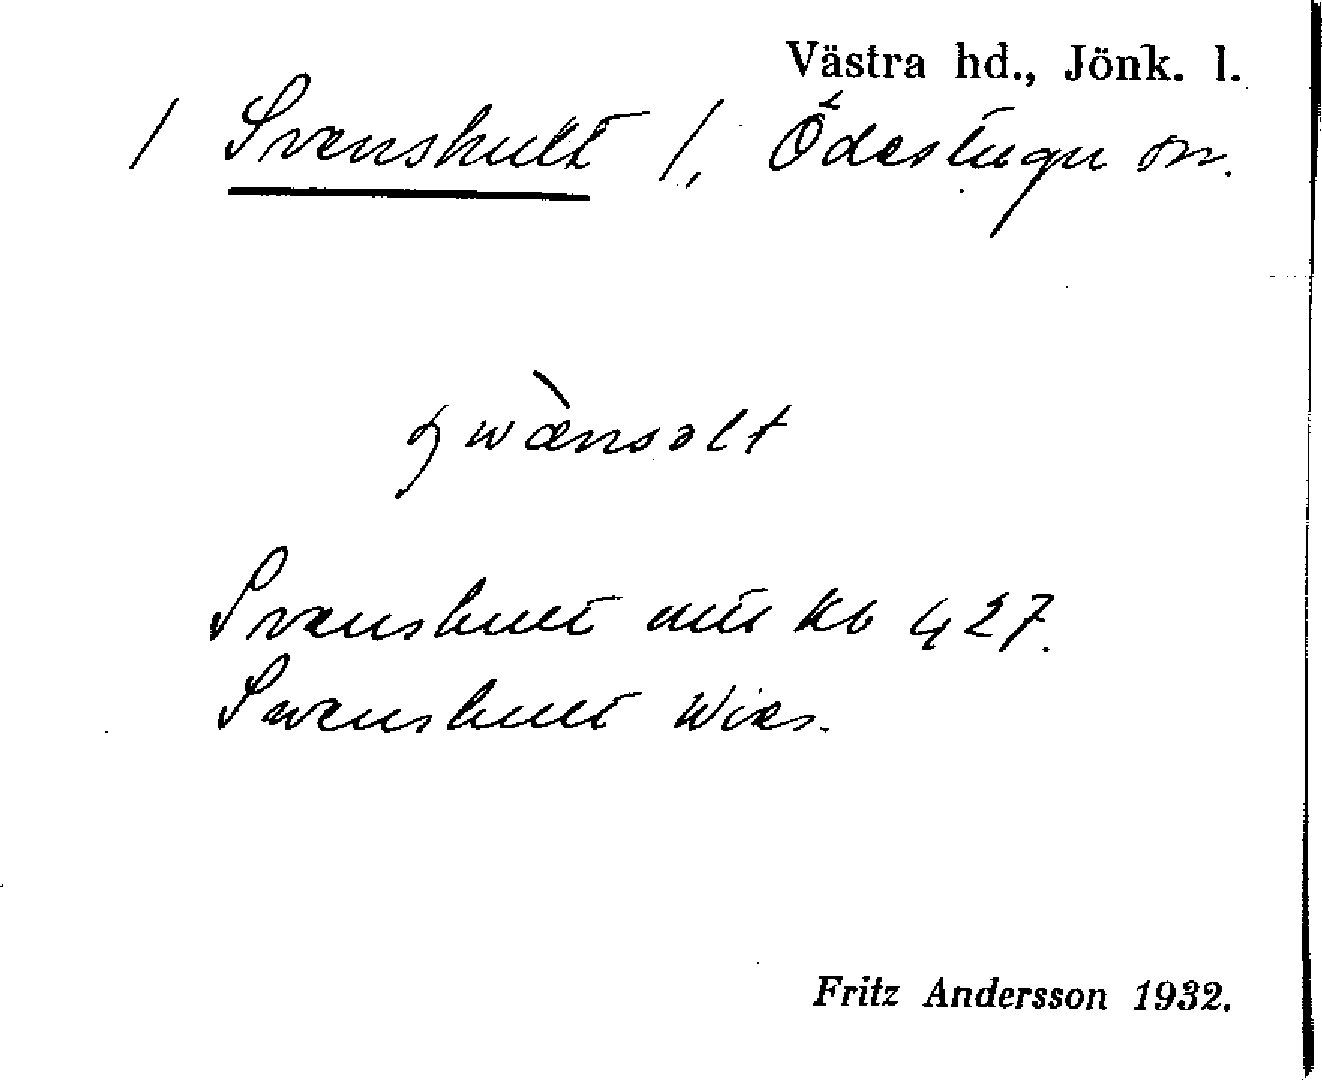 Västra hd., Jönk. l.
/ Svenshult /, Ödestugu sn.
wæ̀nsəlt
Svenshult nu Kb 427.
Swenshult Wies.
Fritz Andersson 1932.